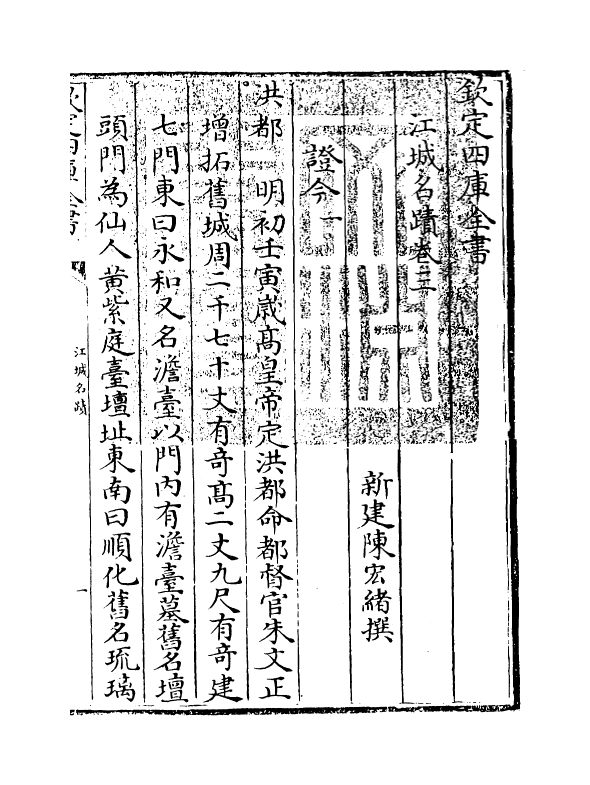 欽定四庫全書
江城名蹟卷三
新建陳宏緒撰
證今一
洪都 明初壬寅嵗髙皇帝定洪都命都督官朱文正
増拓舊城周二千七十丈有竒髙二丈九尺有竒建
七門東曰永和又名澹臺以門内有澹臺墓舊名壇
頭門為仙人黄紫庭臺壇址東南曰順化舊名琉璃
欽定四庫全書
江城名蹟
一